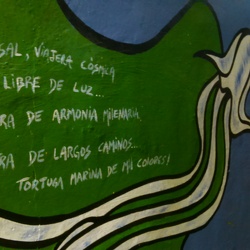 SAL, VIAJERA CÒSMICA
LIBRE DE LUZ...
RA DE ARMONIA MILENARIA
RA DE LARGOS CAMINOS...
TORTUGA MARINA DE MIL COLORES!